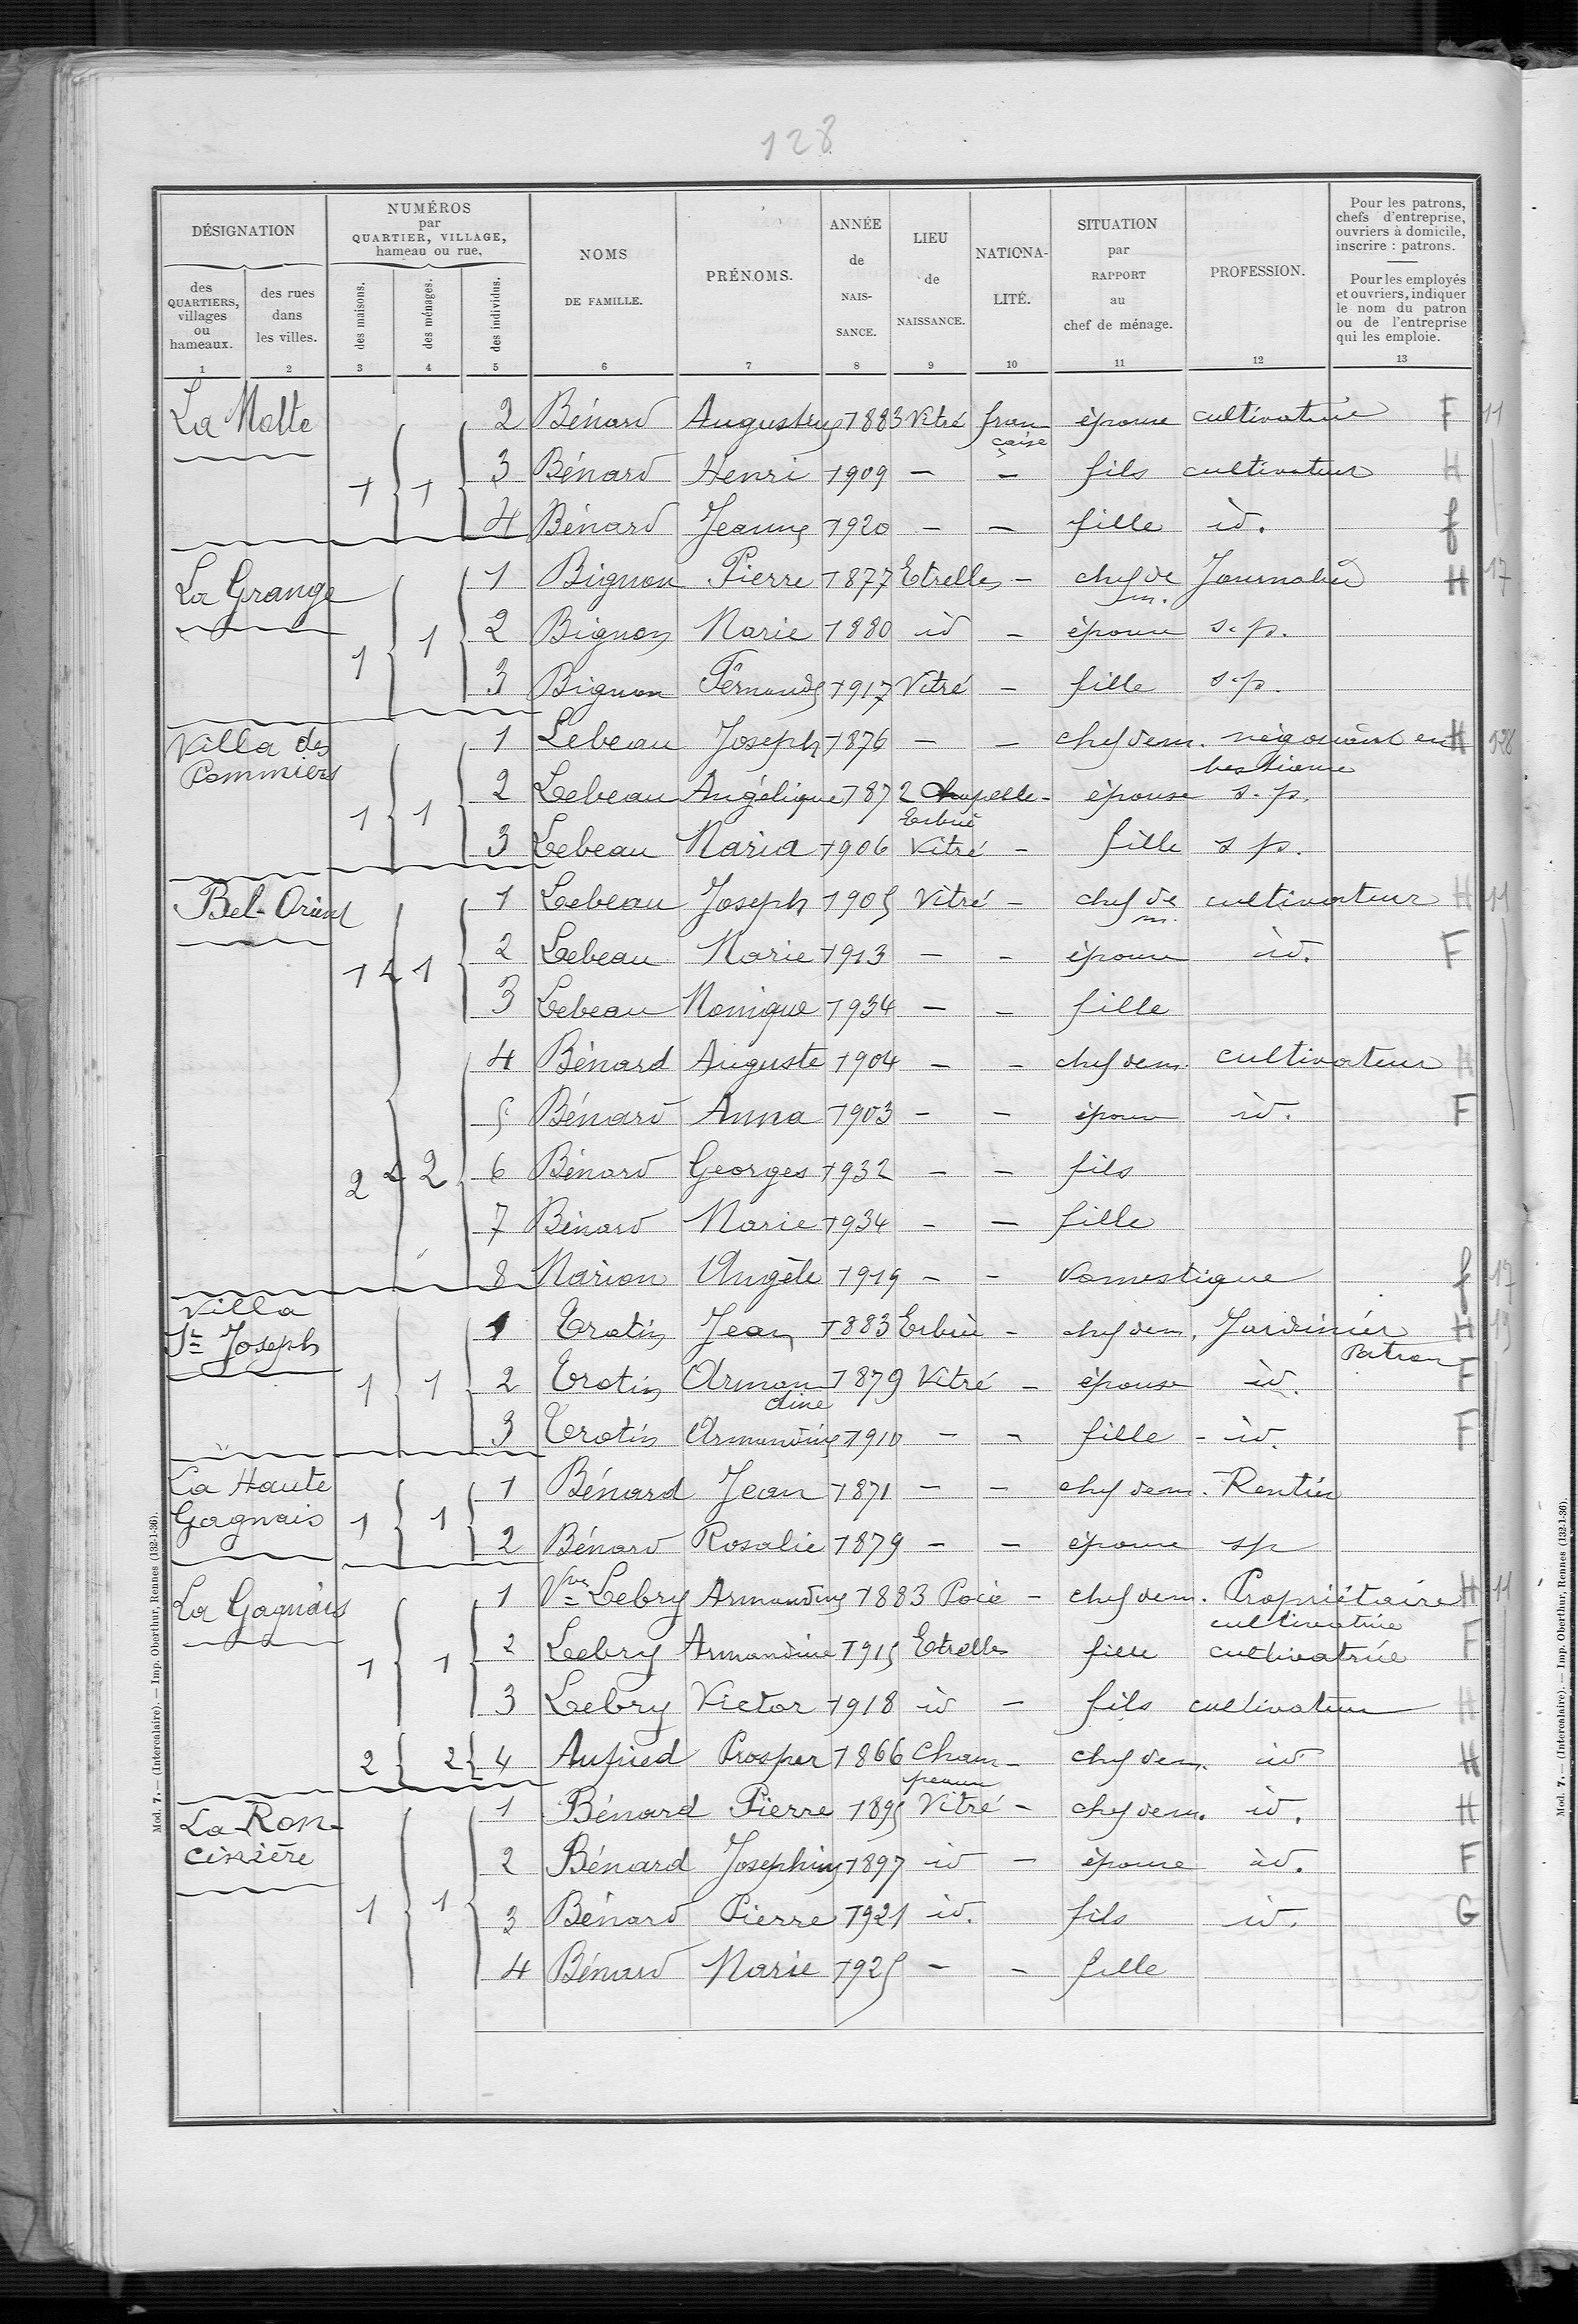 128
DÉSIGNATION
NUMÉROS
par
QUARTIER, VILLAGE,
hameau ou rue.
des
QUARTIERS,
villages
ou
hameaux.
des rues
dans
les villes.
des maisons.
des ménages.
des individus.
NOMS
DE FAMILLE.
PRÉNOMS.
ANNÉE
de
NAIS-
SANCE.
LIEU
de
NAISSANCE.
NATIONA-
LITÉ.
SITUATION
par
RAPPORT
au
chef de ménage.
PROFESSION.
Pour les patrons,
chefs d'entreprise,
ouvriers à domicile,
inscrire : patrons.
Pour les employés
et ouvriers, indiquer
le nom du patron
ou de l'entreprise
qui les emploie.
1 2 3 4 5 6 7 8 9 10 11 12 13
La Motte 2 Bénard Augustine 1883 Vitré fran épouse cultivatrice F 11
çaise
1 1 3 Bénard Henri 1909 - - fils cultivateur H
4 Bénard Jeanne 1920 - - fille id. f
La Grange 1 Bignon Pierre 1877 Etrelles - chef de Journalier H 17
m.
1 1 2 Bignon Marie 1880 id - épouse s.p.
3 Bignon Fernande 1917 Vitré - fille s.p.
Villa des 1 Lebeau Joseph 1876 - - chef de m. négociant en H 128
Pommiers bestiaux
1 1 2 Lebeau Angélique 1872 Chapelle - épouse s.p.
Erbrée
3 Lebeau Maria 1906 Vitré - fille s p.
Bel-Orient 1 Lebeau Joseph 1905 Vitré - chef de cultivateur H 11
m.
1 1 2 Lebeau Marie 1913 - - épouse id. F
3 Lebeau Monique 1934 - - fille
4 Bénard Auguste 1904 - - chef de m. cultivateur H
5 Bénard Anna 1903 - - épouse id. F
2 2 6 Bénard Georges 1932 - - fils
7 Bénard Marie 1934 - - fille
8 Marion Angèle 1919 - - domestique f 17
Villa
St Joseph 1 Trotin Jean 1883 Erbrée - chef de m. Jardinier H 19
Patron
1 1 2 Trotin Arman 1879 Vitré - épouse id. F
dine
3 Trotin Armandine 1910 - - fille - id. F
La Haute 1 Bénard Jean 1871 - - chef de m. Rentier
Gagnais 1 1 2 Bénard Rosalie 1879 - - épouse sp
La Gagnais 1 Vve Lebry Armandine 1883 Pocé - chef de m. Propriétaire H 11
cultivatrice
1 1 2 Lebry Armandine 1915 Etrelles fille cultivatrice F
3 Lebry Victor 1918 id - fils cultivateur H
2 2 4 Aupied Prosper 1866 Cham - chef de m. id H
peaux
La Ron- 1 Bénard Pierre 1895 Vitré - chef de m. id. H
cinière 2 Bénard Josephine 1897 id - épouse id. F
1 1 3 Bénard Pierre 1921 id. fils id. G
4 Bénard Marie 1925 - - fille
Mod. 7. — (Intercalaire). — Imp. Oberthur, Rennes (132-1-36).
Mod. 7. — (Intercalaire). — Imp. Oberthur, Rennes (132-1-36).